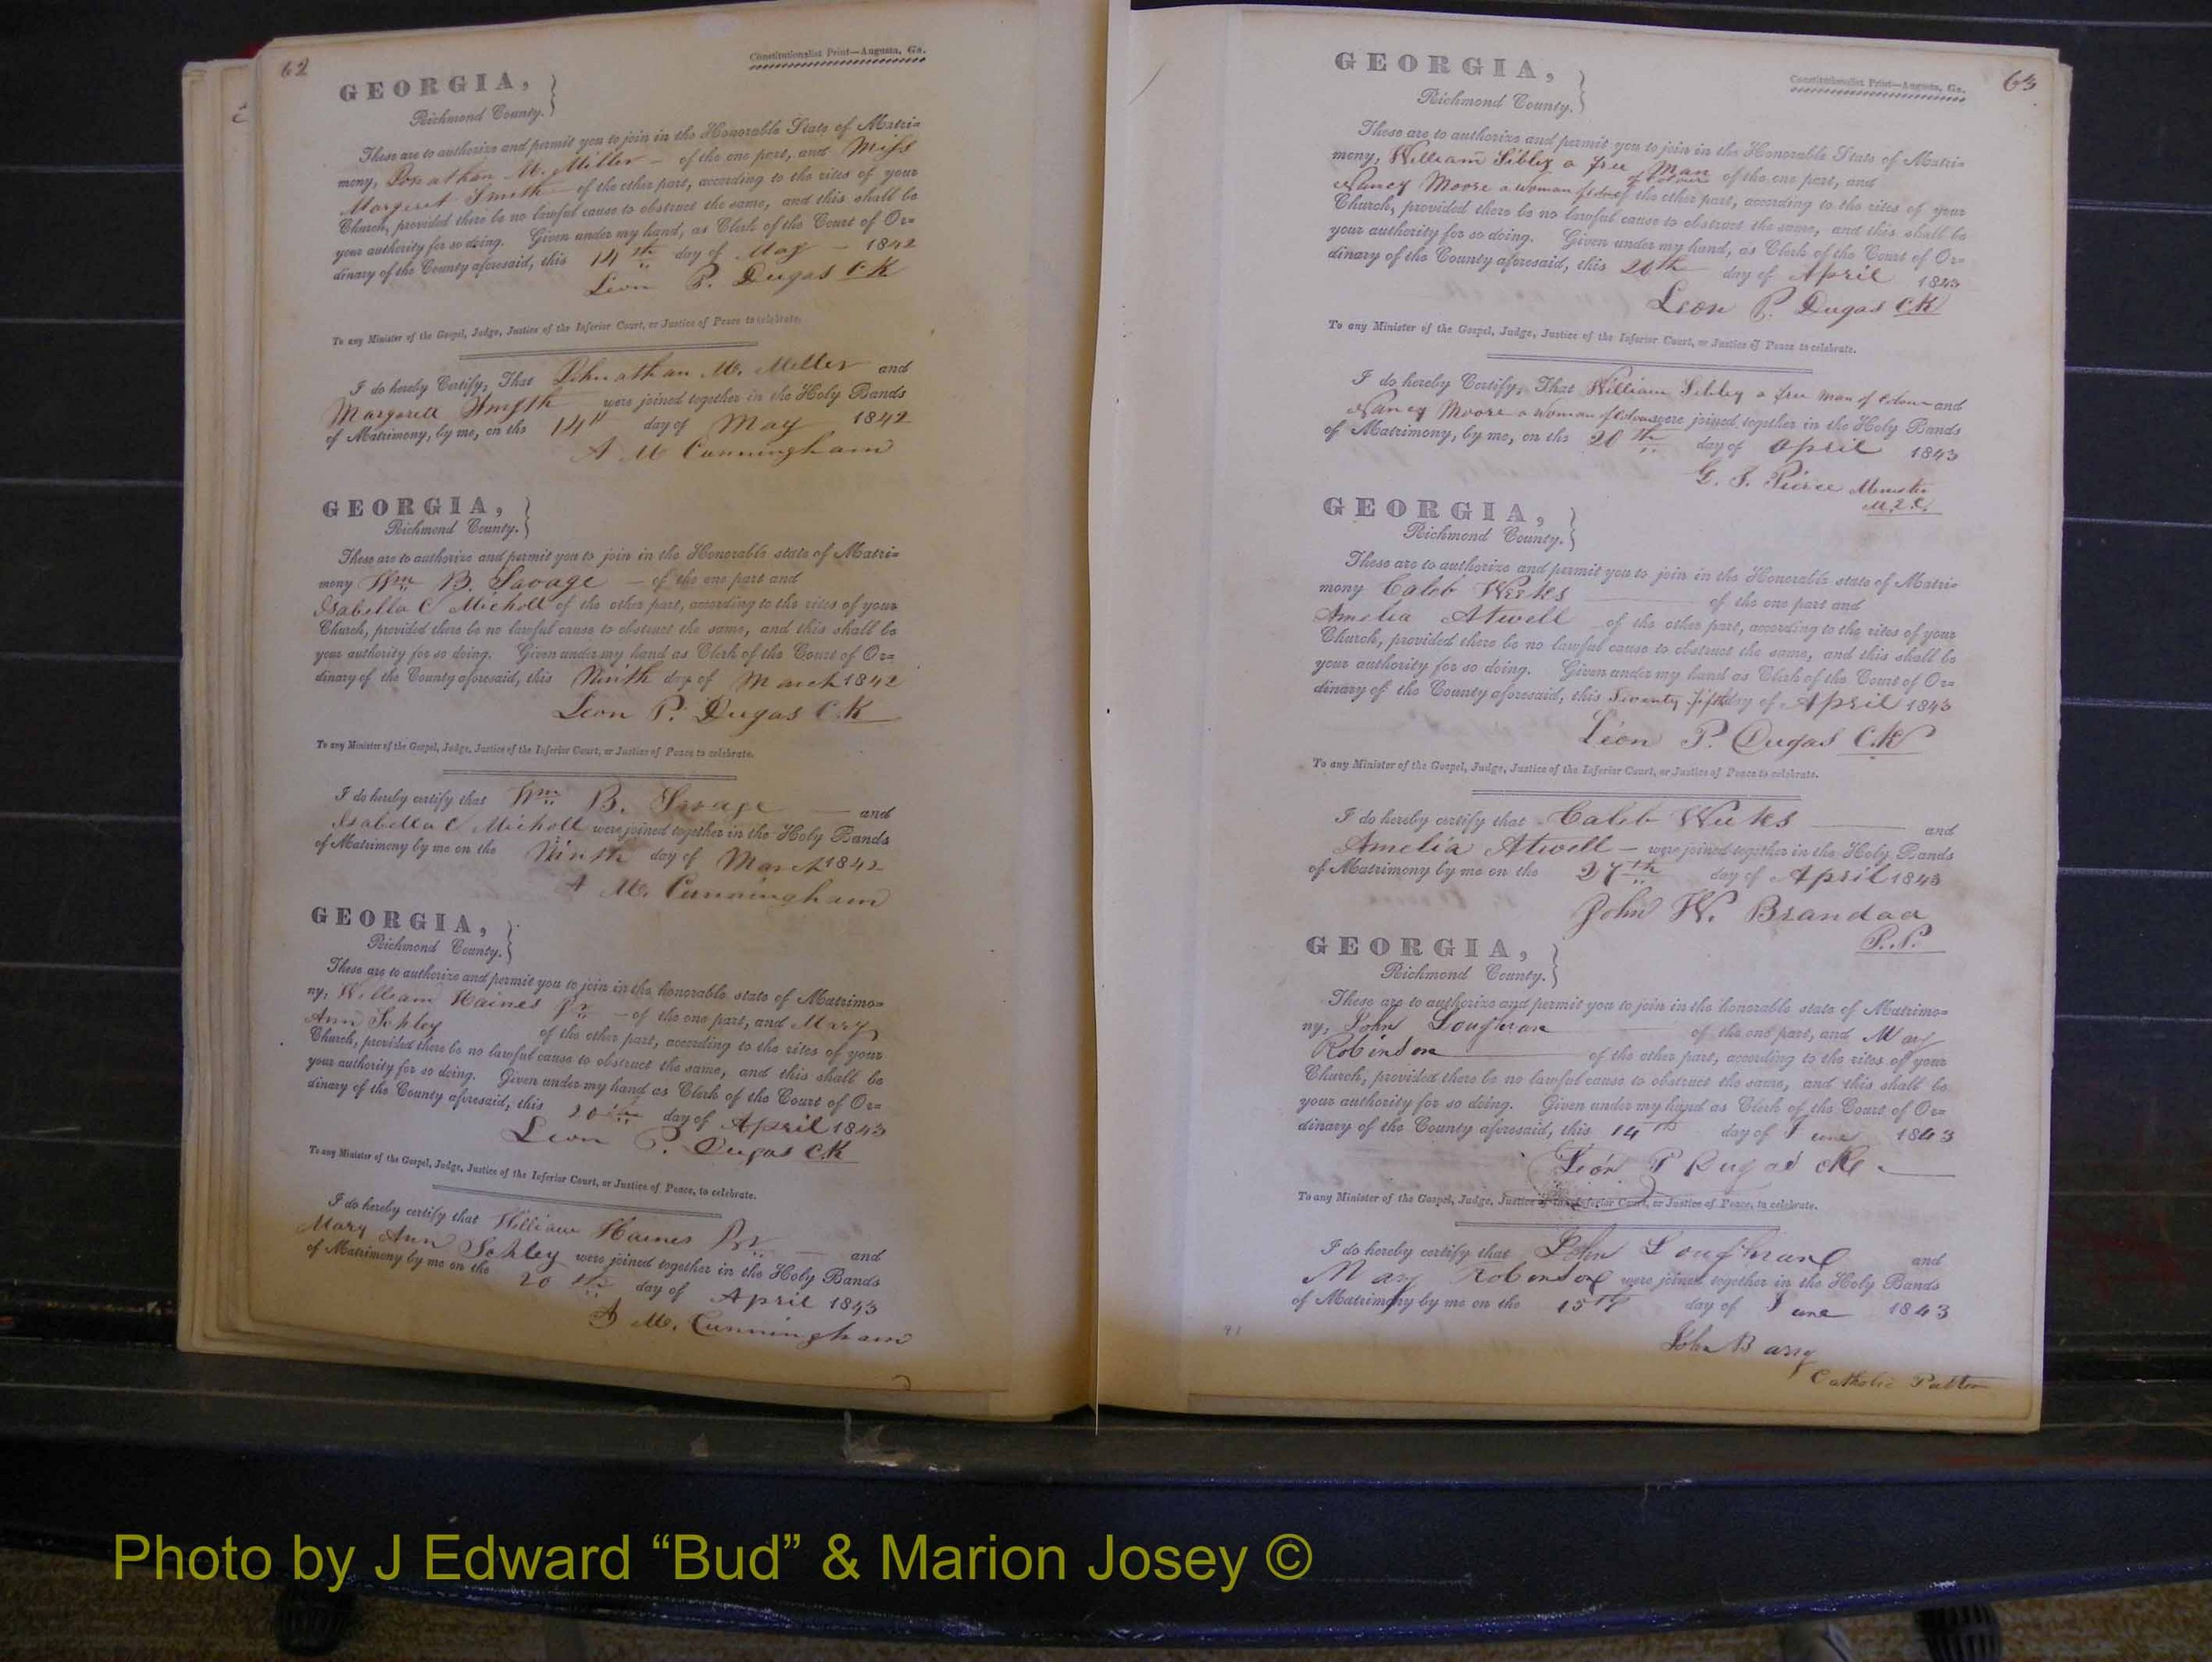 62
Constitutionalist Print—Augusta, Ga.
GEORGIA,
Richmond County.
These are to authorize and permit you to join in the Honorable State of Matri=
mony, Jonathan M. Miller — of the one part, and Miss
Margeret Smith of the other part, according to the rites of your
Church, provided there be no lawful cause to obstruct the same, and this shall be
your authority for so doing. Given under my hand, as Clerk of the Court of Or=
dinary of the County aforesaid, this 14th day of May — 1842
Leon P. Dugas CK
To any Minister of the Gospel, Judge, Justice of the Inferior Court, or Justice of Peace to celebrate.
I do hereby Certify, That Johnathan M. Miller and
Margarett Smyth were joined together in the Holy Bands
of Matrimony, by me, on the 14th day of May 1842
A M Cunningham
GEORGIA,
Richmond County.
These are to authorize and permit you to join in the Honorable state of Matri=
mony Wm B. Savage — of the one part and
Isabella C Micholl of the other part, according to the rites of your
Church, provided there be no lawful cause to obstruct the same, and this shall be
your authority for so doing. Given under my hand as Clerk of the Court of Or=
dinary of the County aforesaid, this Ninth day of March 1842
Leon P. Dugas C.K
To any Minister of the Gospel, Judge, Justice of the Inferior Court, or Justice of Peace to celebrate.
I do hereby certify that Wm B. Savage — and
Isabella C Micholl were joined together in the Holy Bands
of Matrimony by me on the Ninth day of March 1842
A M. Cunningham
GEORGIA,
Richmond County.
These are to authorize and permit you to join in the honorable state of Matrimo=
ny, William Haines Jr — of the one part, and Mary
Ann Schley of the other part, according to the rites of your
Church, provided there be no lawful cause to obstruct the same, and this shall be
your authority for so doing. Given under my hand as Clerk of the Court of Or=
dinary of the County aforesaid, this 20th day of April 1843
Leon P. Dugas CK
To any Minister of the Gospel, Judge, Justice of the Inferior Court, or Justice of Peace, to celebrate.
I do hereby certify that William Haines Jr — and
Mary Ann Schley were joined together in the Holy Bands
of Matrimony by me on the 20th day of April 1843
A M. Cunningham
63
Constitutionalist Print—Augusta, Ga.
GEORGIA,
Richmond County.
These are to authorize and permit you to join in the Honorable State of Matri=
mony, William Sibley a free Man of Colour of the one part, and
Nancy Moore a woman of Color of the other part, according to the rites of your
Church, provided there be no lawful cause to obstruct the same, and this shall be
your authority for so doing. Given under my hand, as Clerk of the Court of Or=
dinary of the County aforesaid, this 20th day of April 1843
Leon P. Dugas CK
To any Minister of the Gospel, Judge, Justice of the Inferior Court, or Justice of Peace to celebrate.
I do hereby Certify, That William Sibley a free man of Colour and
Nancy Moore a Woman of Colour were joined together in the Holy Bands
of Matrimony, by me, on the 20th day of April 1843
G. F. Pierce Minister
M.E.C.
GEORGIA,
Richmond County.
These are to authorize and permit you to join in the Honorable state of Matri=
mony Caleb Weeks — of the one part and
Amelia Atwell of the other part, according to the rites of your
Church, provided there be no lawful cause to obstruct the same, and this shall be
your authority for so doing. Given under my hand as Clerk of the Court of Or=
dinary of the County aforesaid, this Seventy fifth day of April 1843
Leon P. Dugas C.K
To any Minister of the Gospel, Judge, Justice of the Inferior Court, or Justice of Peace to celebrate.
I do hereby certify that Caleb Weeks — and
Amelia Atwell — were joined together in the Holy Bands
of Matrimony by me on the 27th day of April 1843
John W. Brandaa
P.P.
GEORGIA,
Richmond County.
These are to authorize and permit you to join in the honorable state of Matrimo=
ny, John Loughran of the one part, and Mary
Robinson of the other part, according to the rites of your
Church, provided there be no lawful cause to obstruct the same, and this shall be
your authority for so doing. Given under my hand as Clerk of the Court of Or=
dinary of the County aforesaid, this 14th day of June 1843
Leon P Dugas Clk.
To any Minister of the Gospel, Judge, Justice of the Inferior Court, or Justice of Peace, to celebrate.
I do hereby certify that John Loughran and
Mary Robinson were joined together in the Holy Bands
of Matrimony by me on the 15th day of June 1843
John Barry
Catholic
Photo by J Edward “Bud” & Marion Josey ©